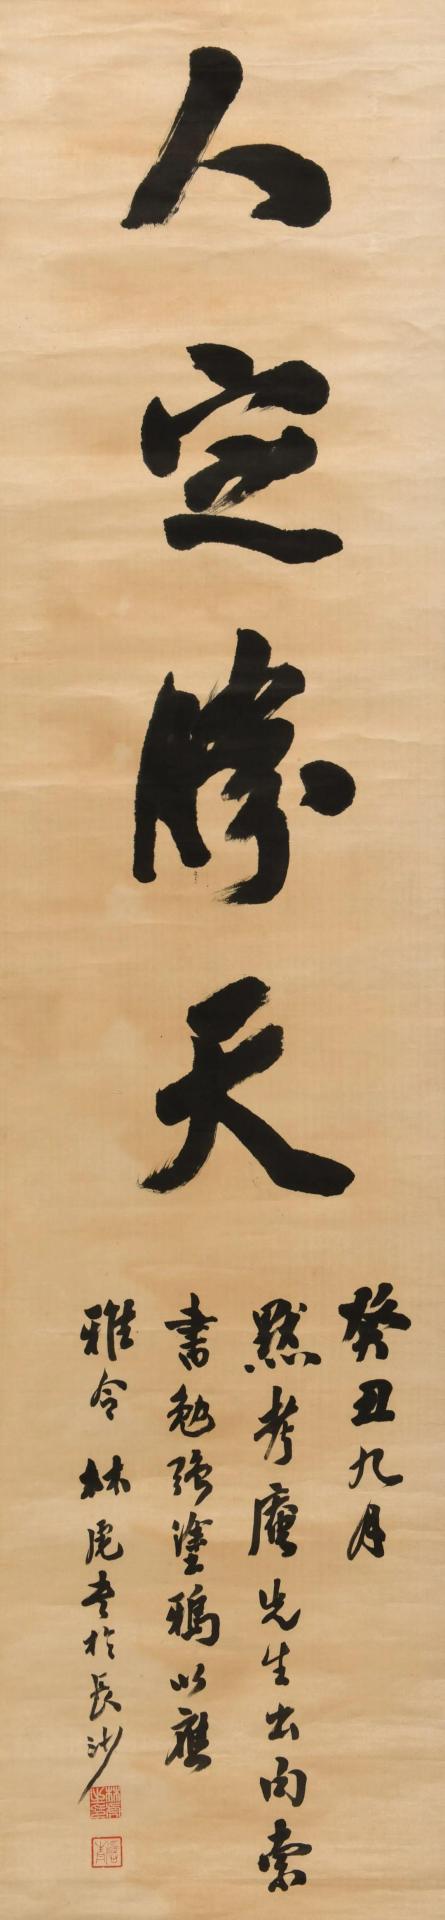 人定勝天
癸丑九月
默考庵先生出向索
書勉強塗鴉以應
雅令 林虎書於長沙